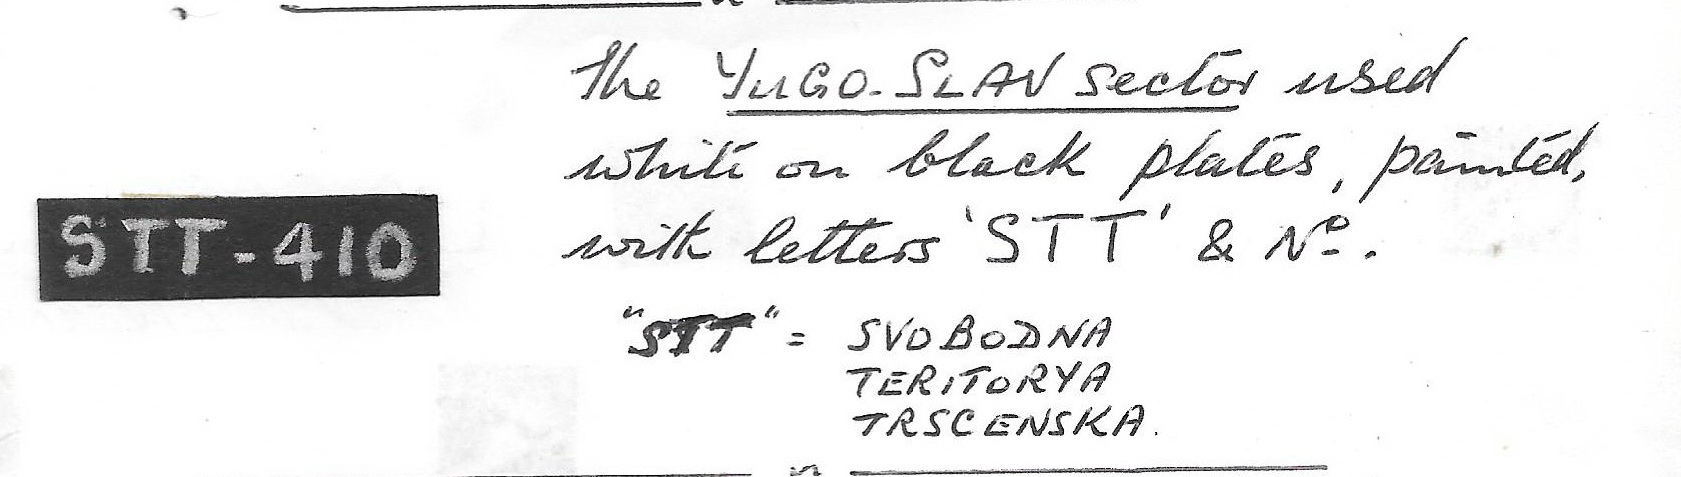 The YUGO-SLAV sector used
white on black plates, painted,
with letters 'STT' & Nº.
STT-410
"STT" = SVOBODNA
TERITORYA
TRSCENSKA.